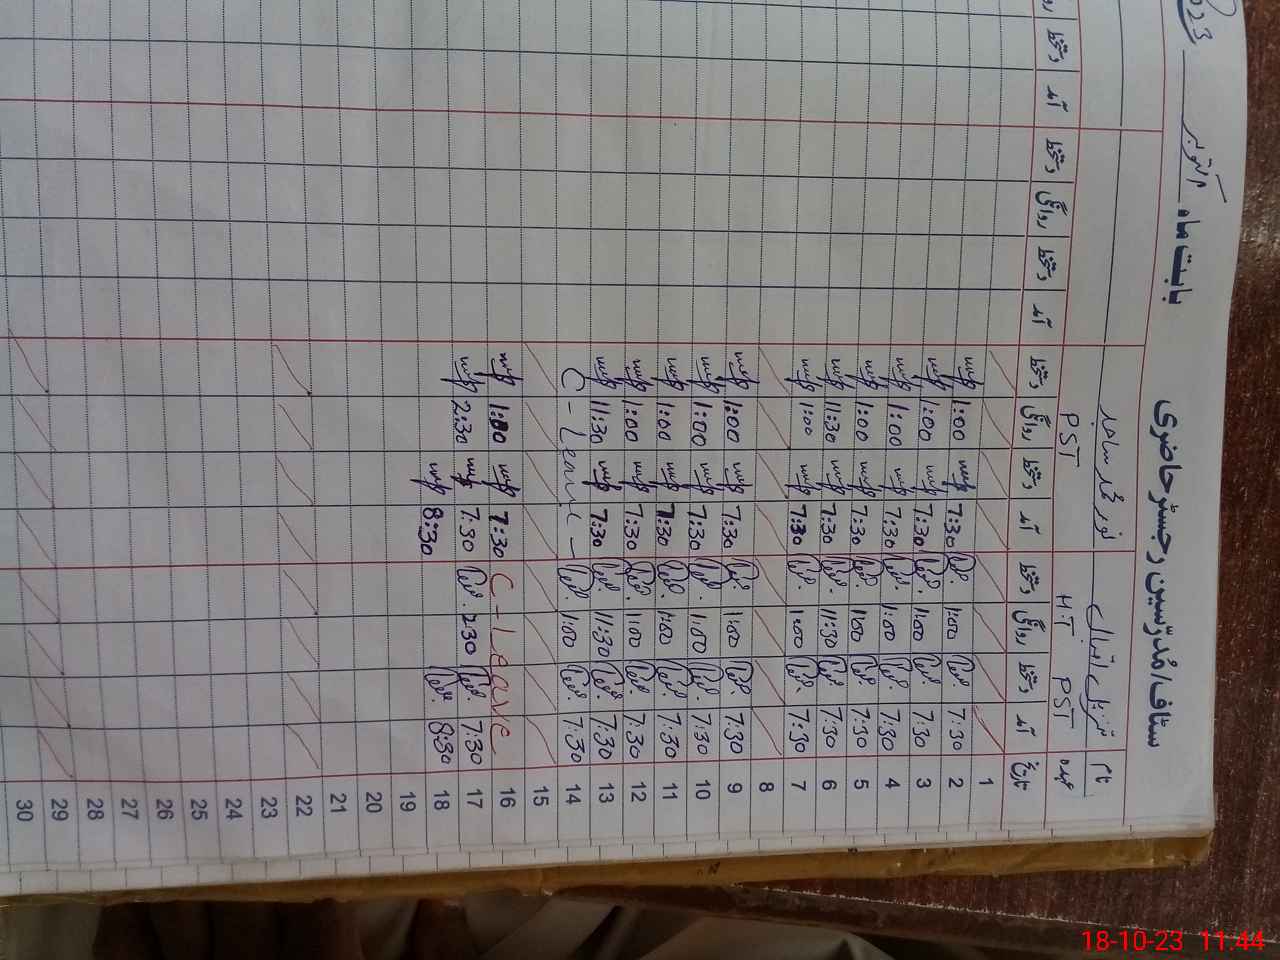 سٹاف/مُدرّسین رجسٹر حاضری بابت ماہ اکتوبر 2023
نام تنزیل اقبال نور محمد ساجد
عہدہ H.T PST PST
تاریخ آمد دستخط روانگی دستخط آمد دستخط روانگی دستخط آمد دستخط روانگی دستخط آمد دستخط
1
2 7:30 1:00 7:30 1:00
3 7:30 1:00 7:30 1:00
4 7:30 1:00 7:30 1:00
5 7:30 1:00 7:30 1:00
6 7:30 11:30 7:30 11:30
7 7:30 1:00 7:30 1:00
8
9 7:30 1:00 7:30 1:00
10 7:30 1:00 7:30 1:00
11 7:30 1:00 7:30 1:00
12 7:30 1:00 7:30 1:00
13 7:30 11:30 7:30 11:30
14 7:30 1:00 C-Leave-
15
16 C-Leave 7:30 1:00
17 7:30 2:30 7:30 2:30
18 8:30 8:30
19
20
21
22
23
24
25
26
27
28
29
30
18-10-23 11:44